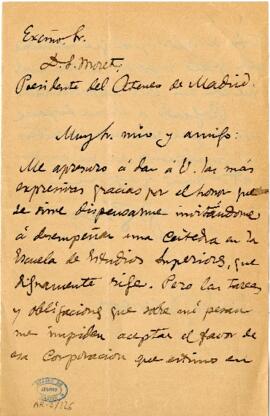 Excmo. Sr.
D. S. Moret,
Presidente del Ateneo de Madrid.
Muy Sr. mio y amigo:
Me apresuro á dar á V. las más
expresivas gracias por el honor que
se sirve dispensarme invitándome
á desempeñar una Cátedra en la
Escuela de Estudios Superiores, que
dignamente rige. Pero las tareas
y obligaciones que sobre mí pesan
me impiden aceptar el favor de
esa Corporacion que estimo en